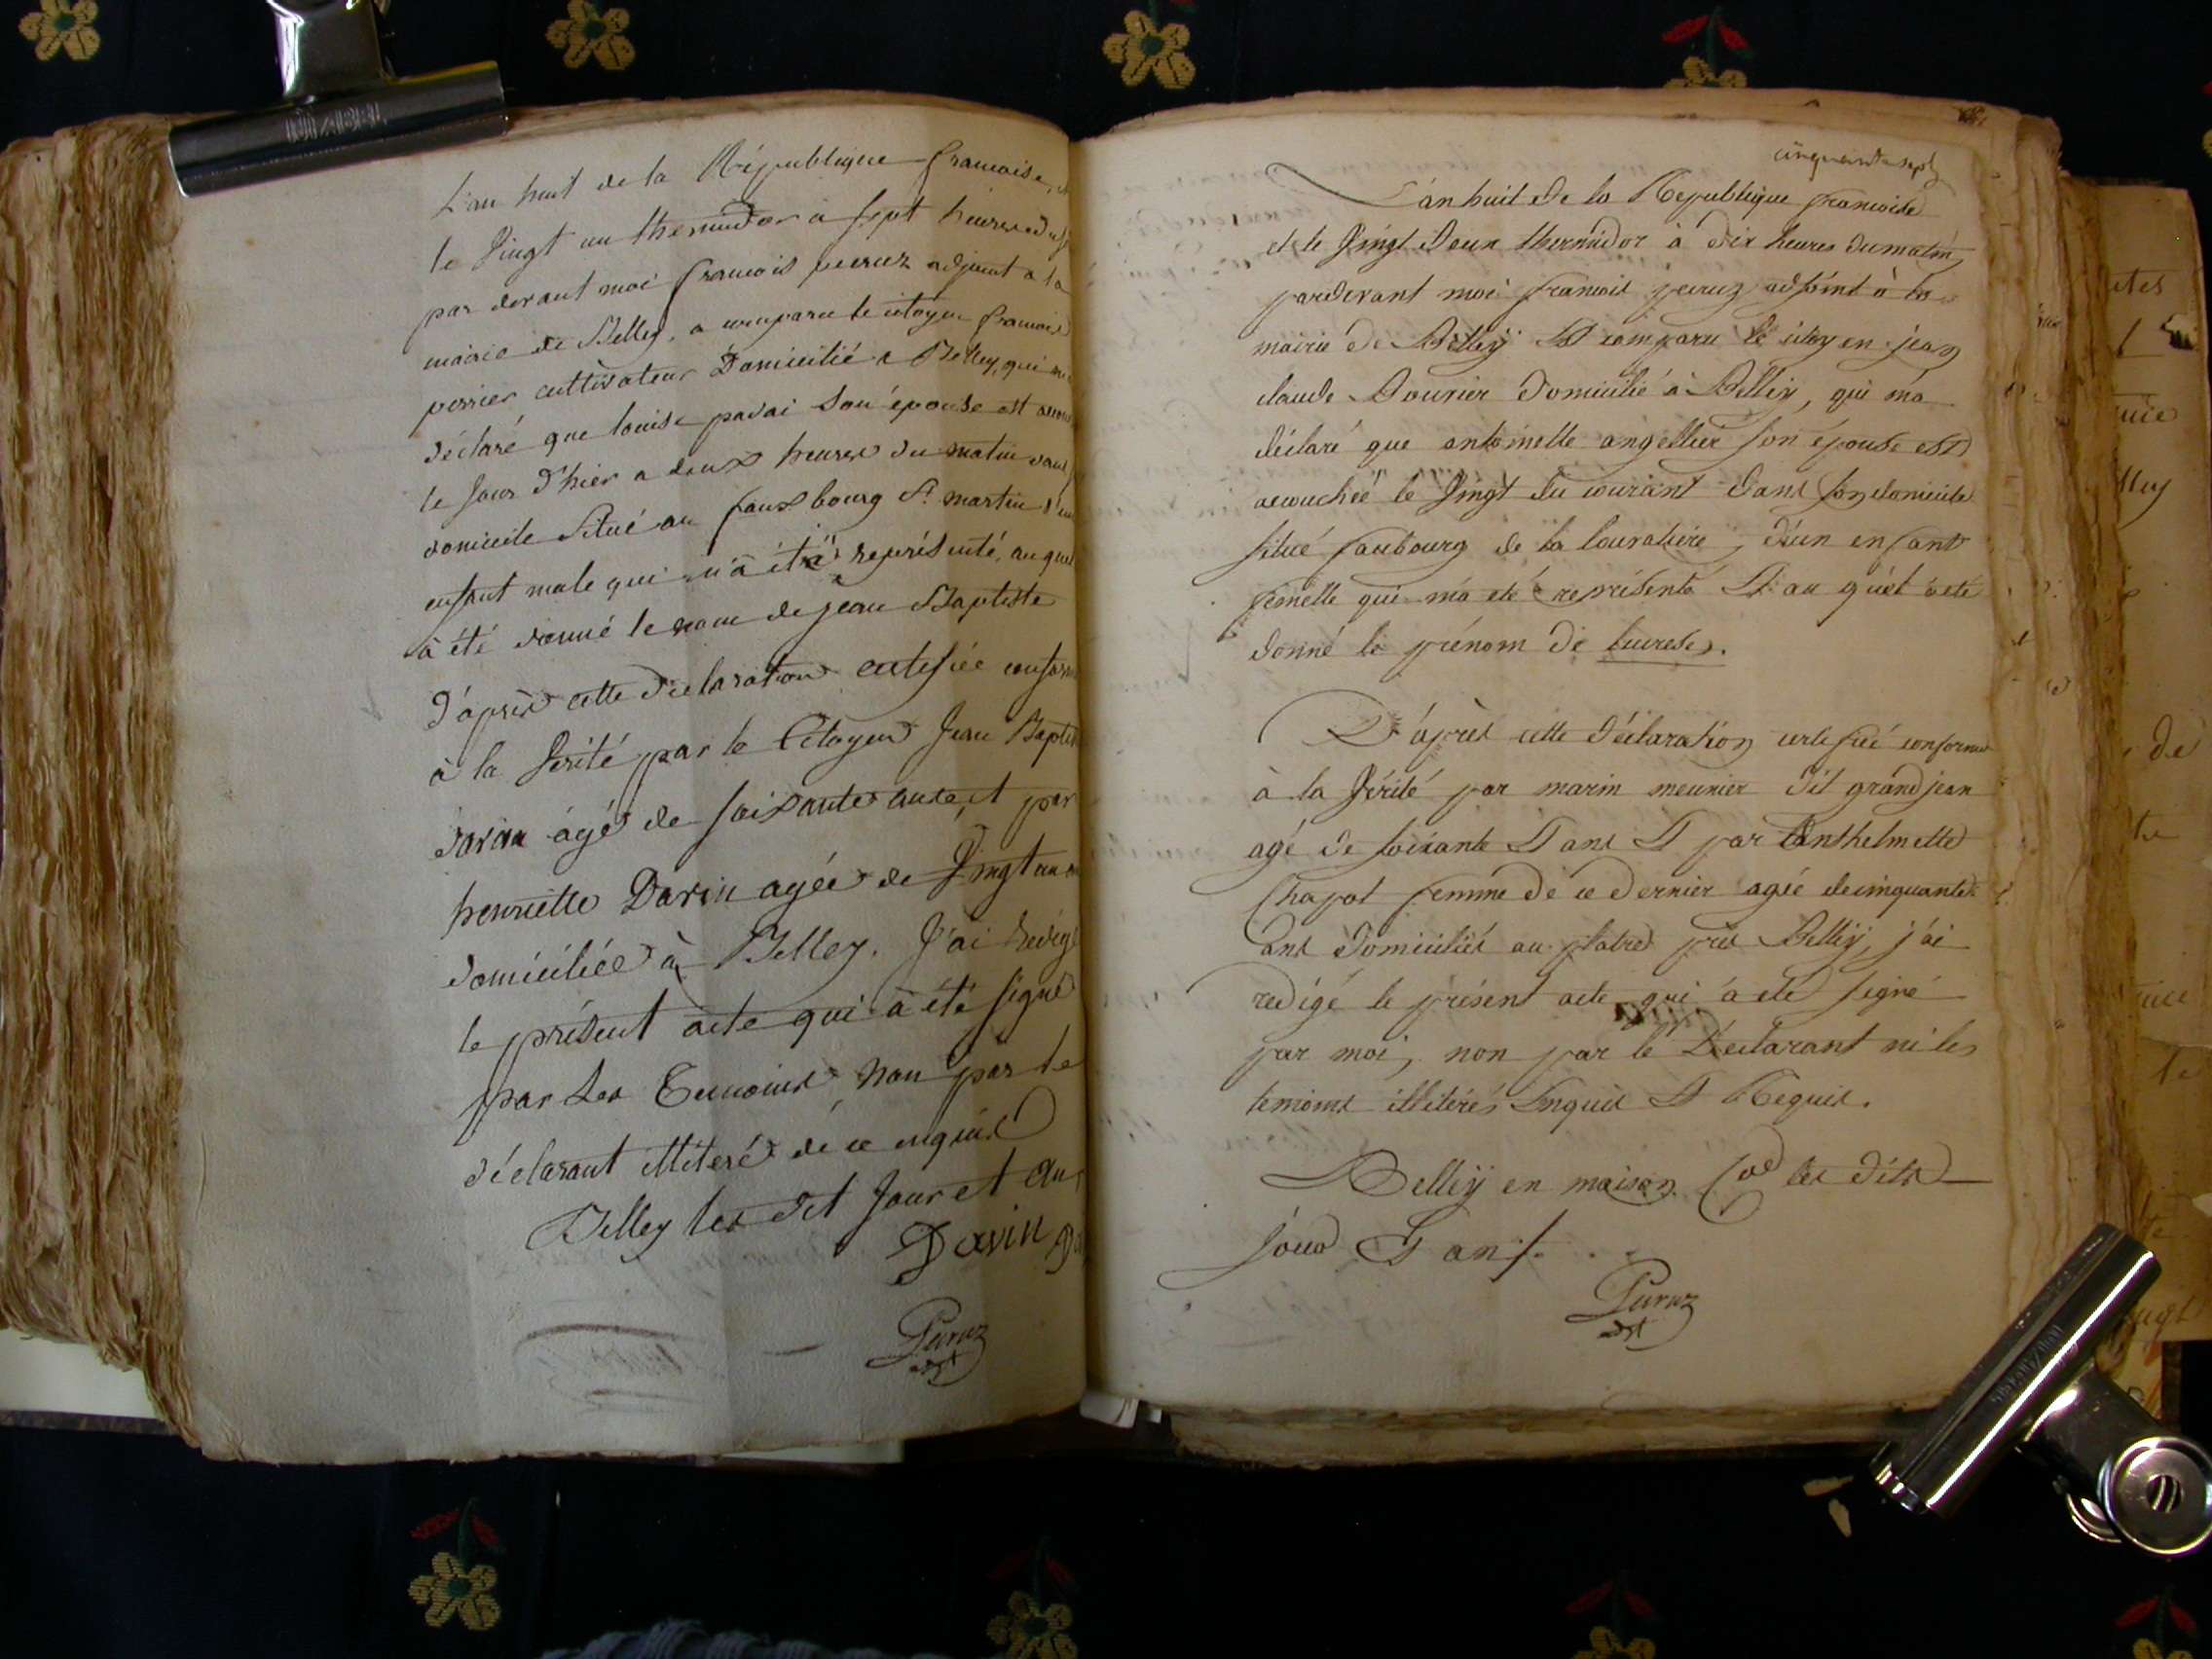 L'an huit de la République francaise, et
le Vingt un thermidor a sept heures du
par devant moi francois peeruz adjoint a la
mairie de Belley, a comparu le citoyen francois
perrier cultivateur Domicilié a Belley, qui m'a
déclaré que louise pavai son épouse est
le jour d'hier a deux heures du matin dans
domicile situé au fauxbourg St. martin d'un
enfant male qui m'à été représenté, auquel
à été donné le nom de jean Baptiste
D'après cette déclaration certifiée conforme
à la Verité par le Citoyen Jean Baptiste
Davin âgé de soixante ans, et par
henriette Davin agée de Vingt un
domiciliée à Belley. J'ai redigé
le présent acte qui à été signé
par Les Temoins non par le
déclarant illiteré de ce enquis
Belley les dit Jour et an
Davin
Peruz
adjt
cinquante sept
L'an huit de la Republique francoise
et le Vingt Deux thermidor à dix heures du matin,
pardevant moi francois peeruz adjoint à la
mairie de Belley Et comparu le citoyen jean
claude Dourier domicilié à Belley, qui m'a
déclaré que antoinette angellier son épouse est
accouchée le Vingt du courant dans son domicile
situé faubourg de la louvatiere, d'un enfant
femelle qui m'a eté représenté Et au quel à eté
donné le prénom de
D'après cette déclaration certifié conforme
à la Vérité par marin meunier dit grand jean
agé de soixante Et ans Et par Anthelmette
Chapot femme de ce dernier agée de cinquante
ans domiciliés au platre près Belley, j'ai
redigé le présent acte qui à eté signé
par moi, non par le Déclarant ni les
temoins illiterés Enquis Et Requis.
Belley en maison coe les dits
jour Et an
Peruz
adjt